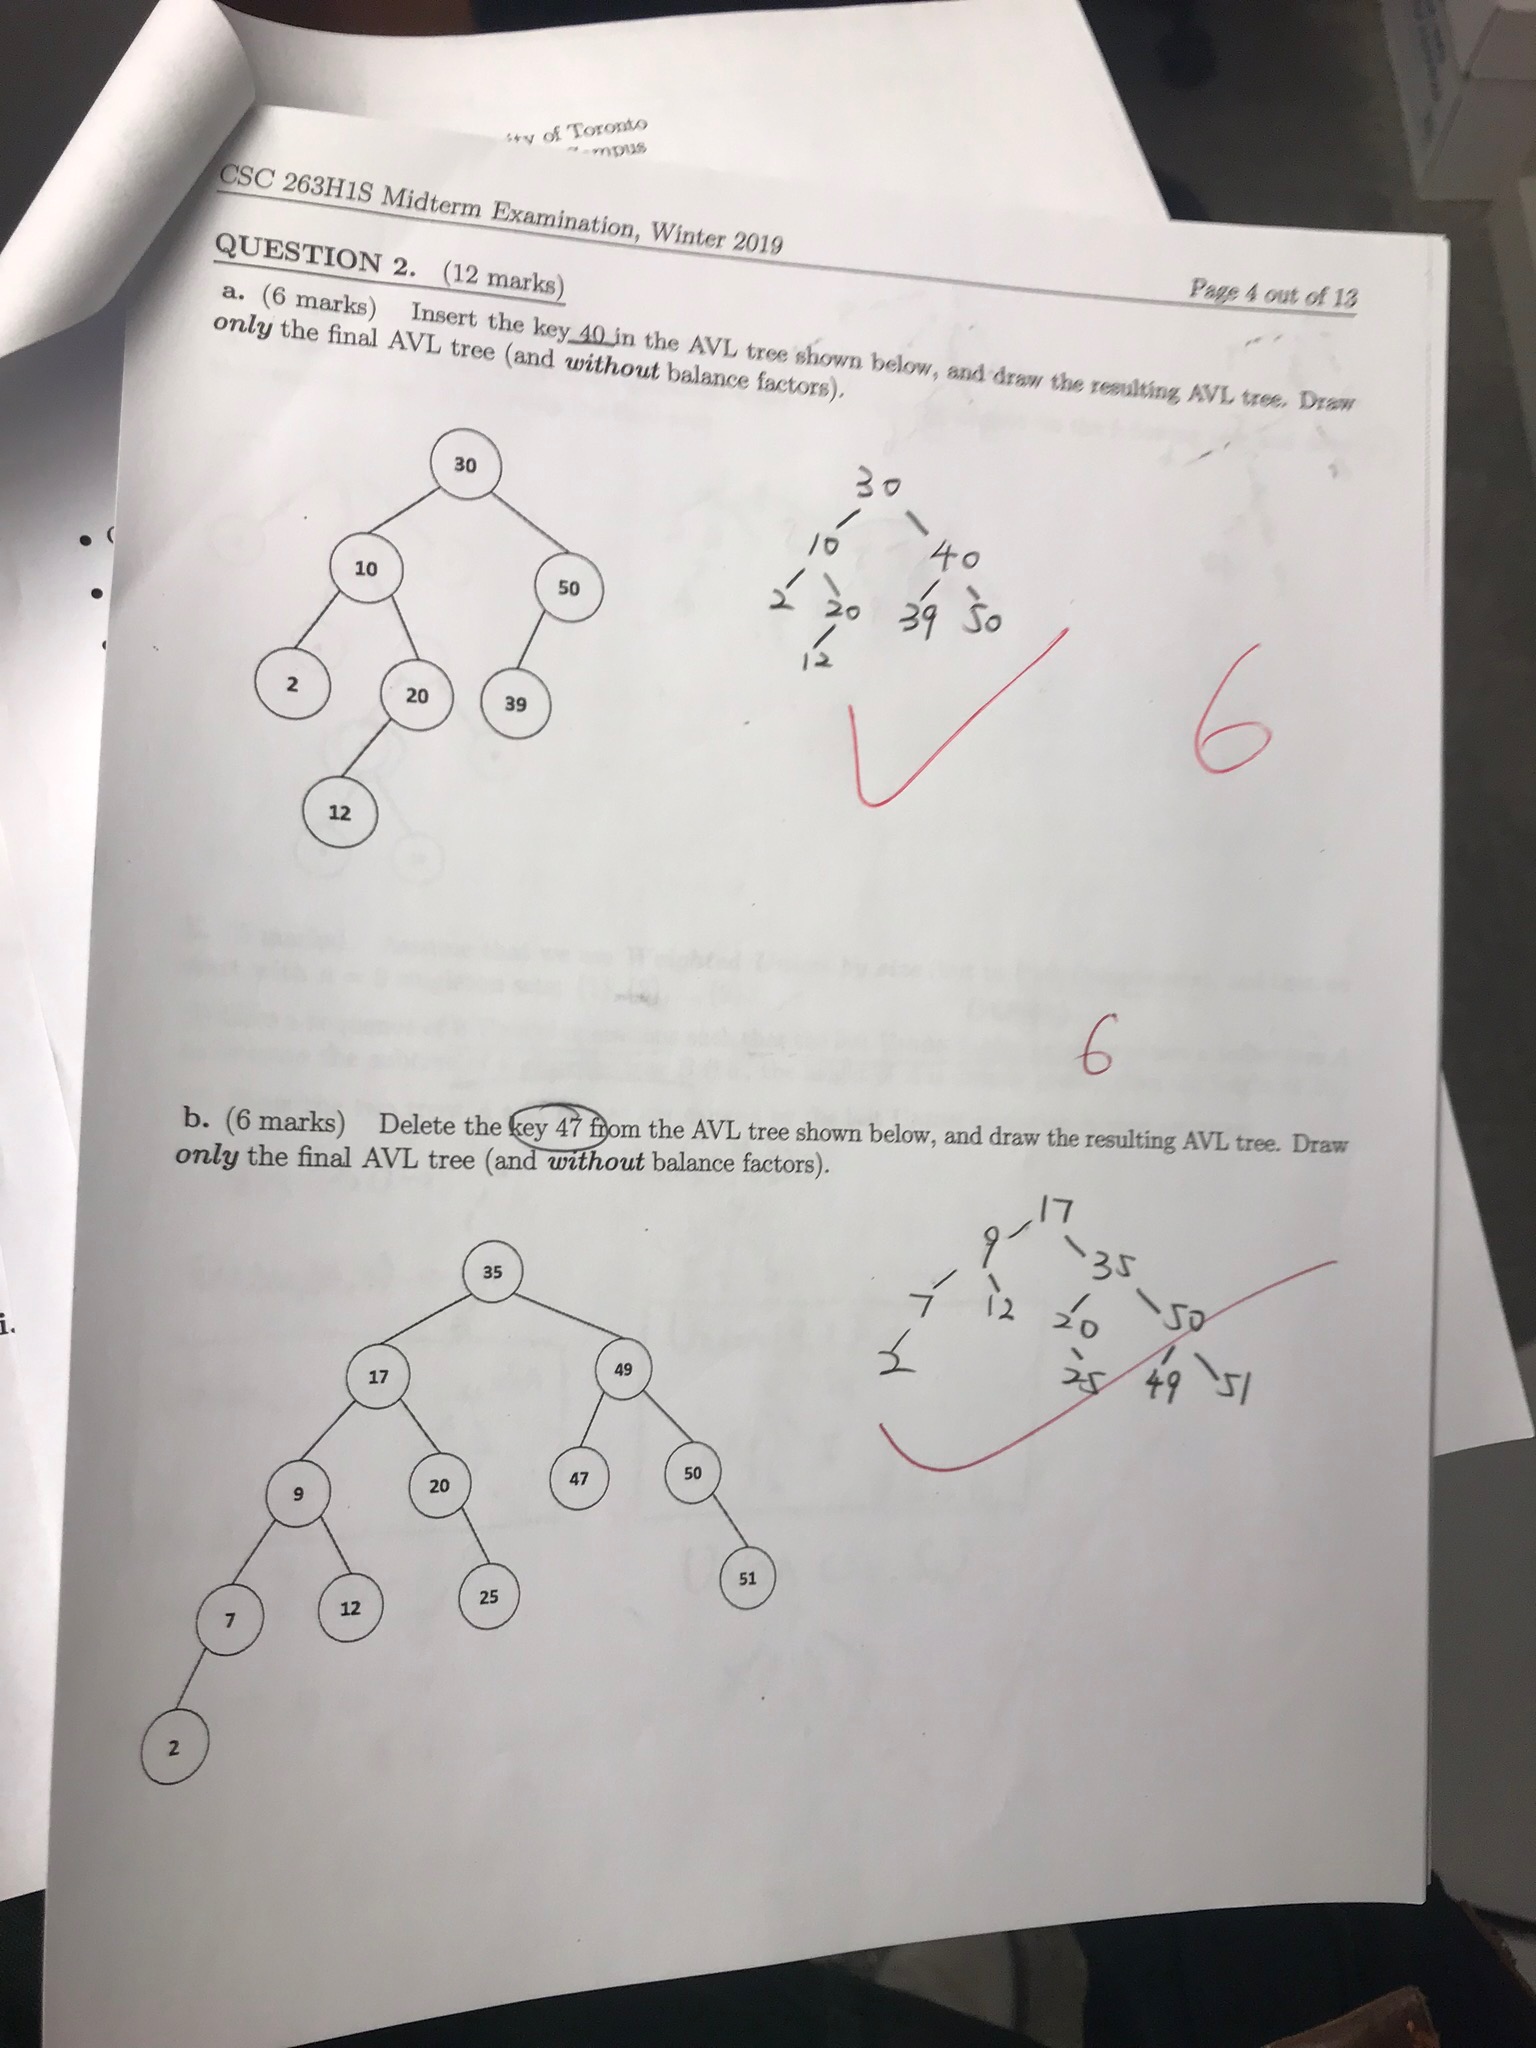 ity of Toronto
mpus
CSC 263H1S Midterm Examination, Winter 2019
Page 4 out of 13
QUESTION 2. (12 marks)
a. (6 marks) Insert the key 40 in the AVL tree shown below, and draw the resulting AVL tree. Draw
only the final AVL tree (and without balance factors).
30
10
50
2
20
39
12
30
10 40
2 20 39 50
12
6
6
b. (6 marks) Delete the key 47 from the AVL tree shown below, and draw the resulting AVL tree. Draw
only the final AVL tree (and without balance factors).
35
17
49
9
20
47
50
7
12
25
51
2
17
9 35
7 12 20 50
2 25 49 51
i.